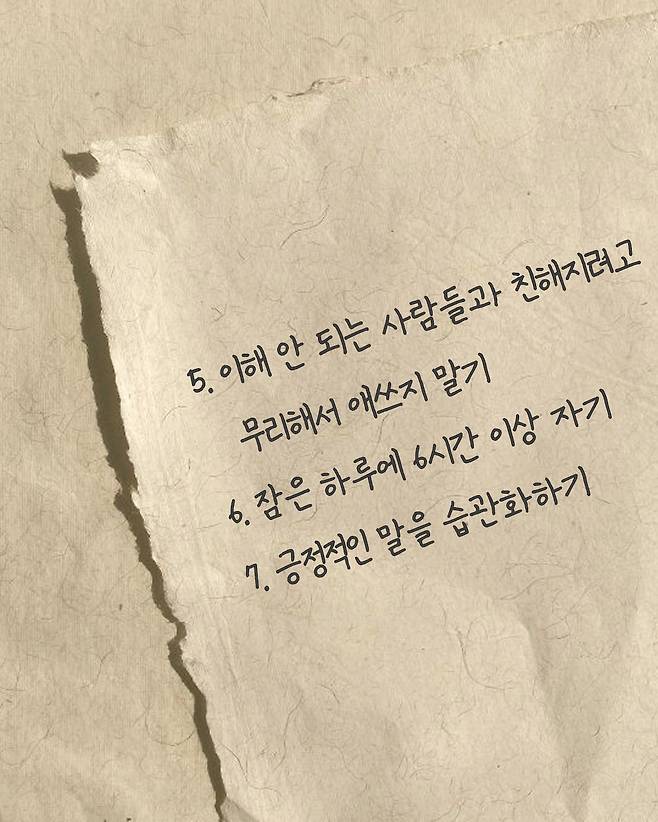 5. 이해 안 되는 사람들과 친해지려고
무리해서 애쓰지 말기
6. 잠은 하루에 6시간 이상 자기
7. 긍정적인 말을 습관화하기